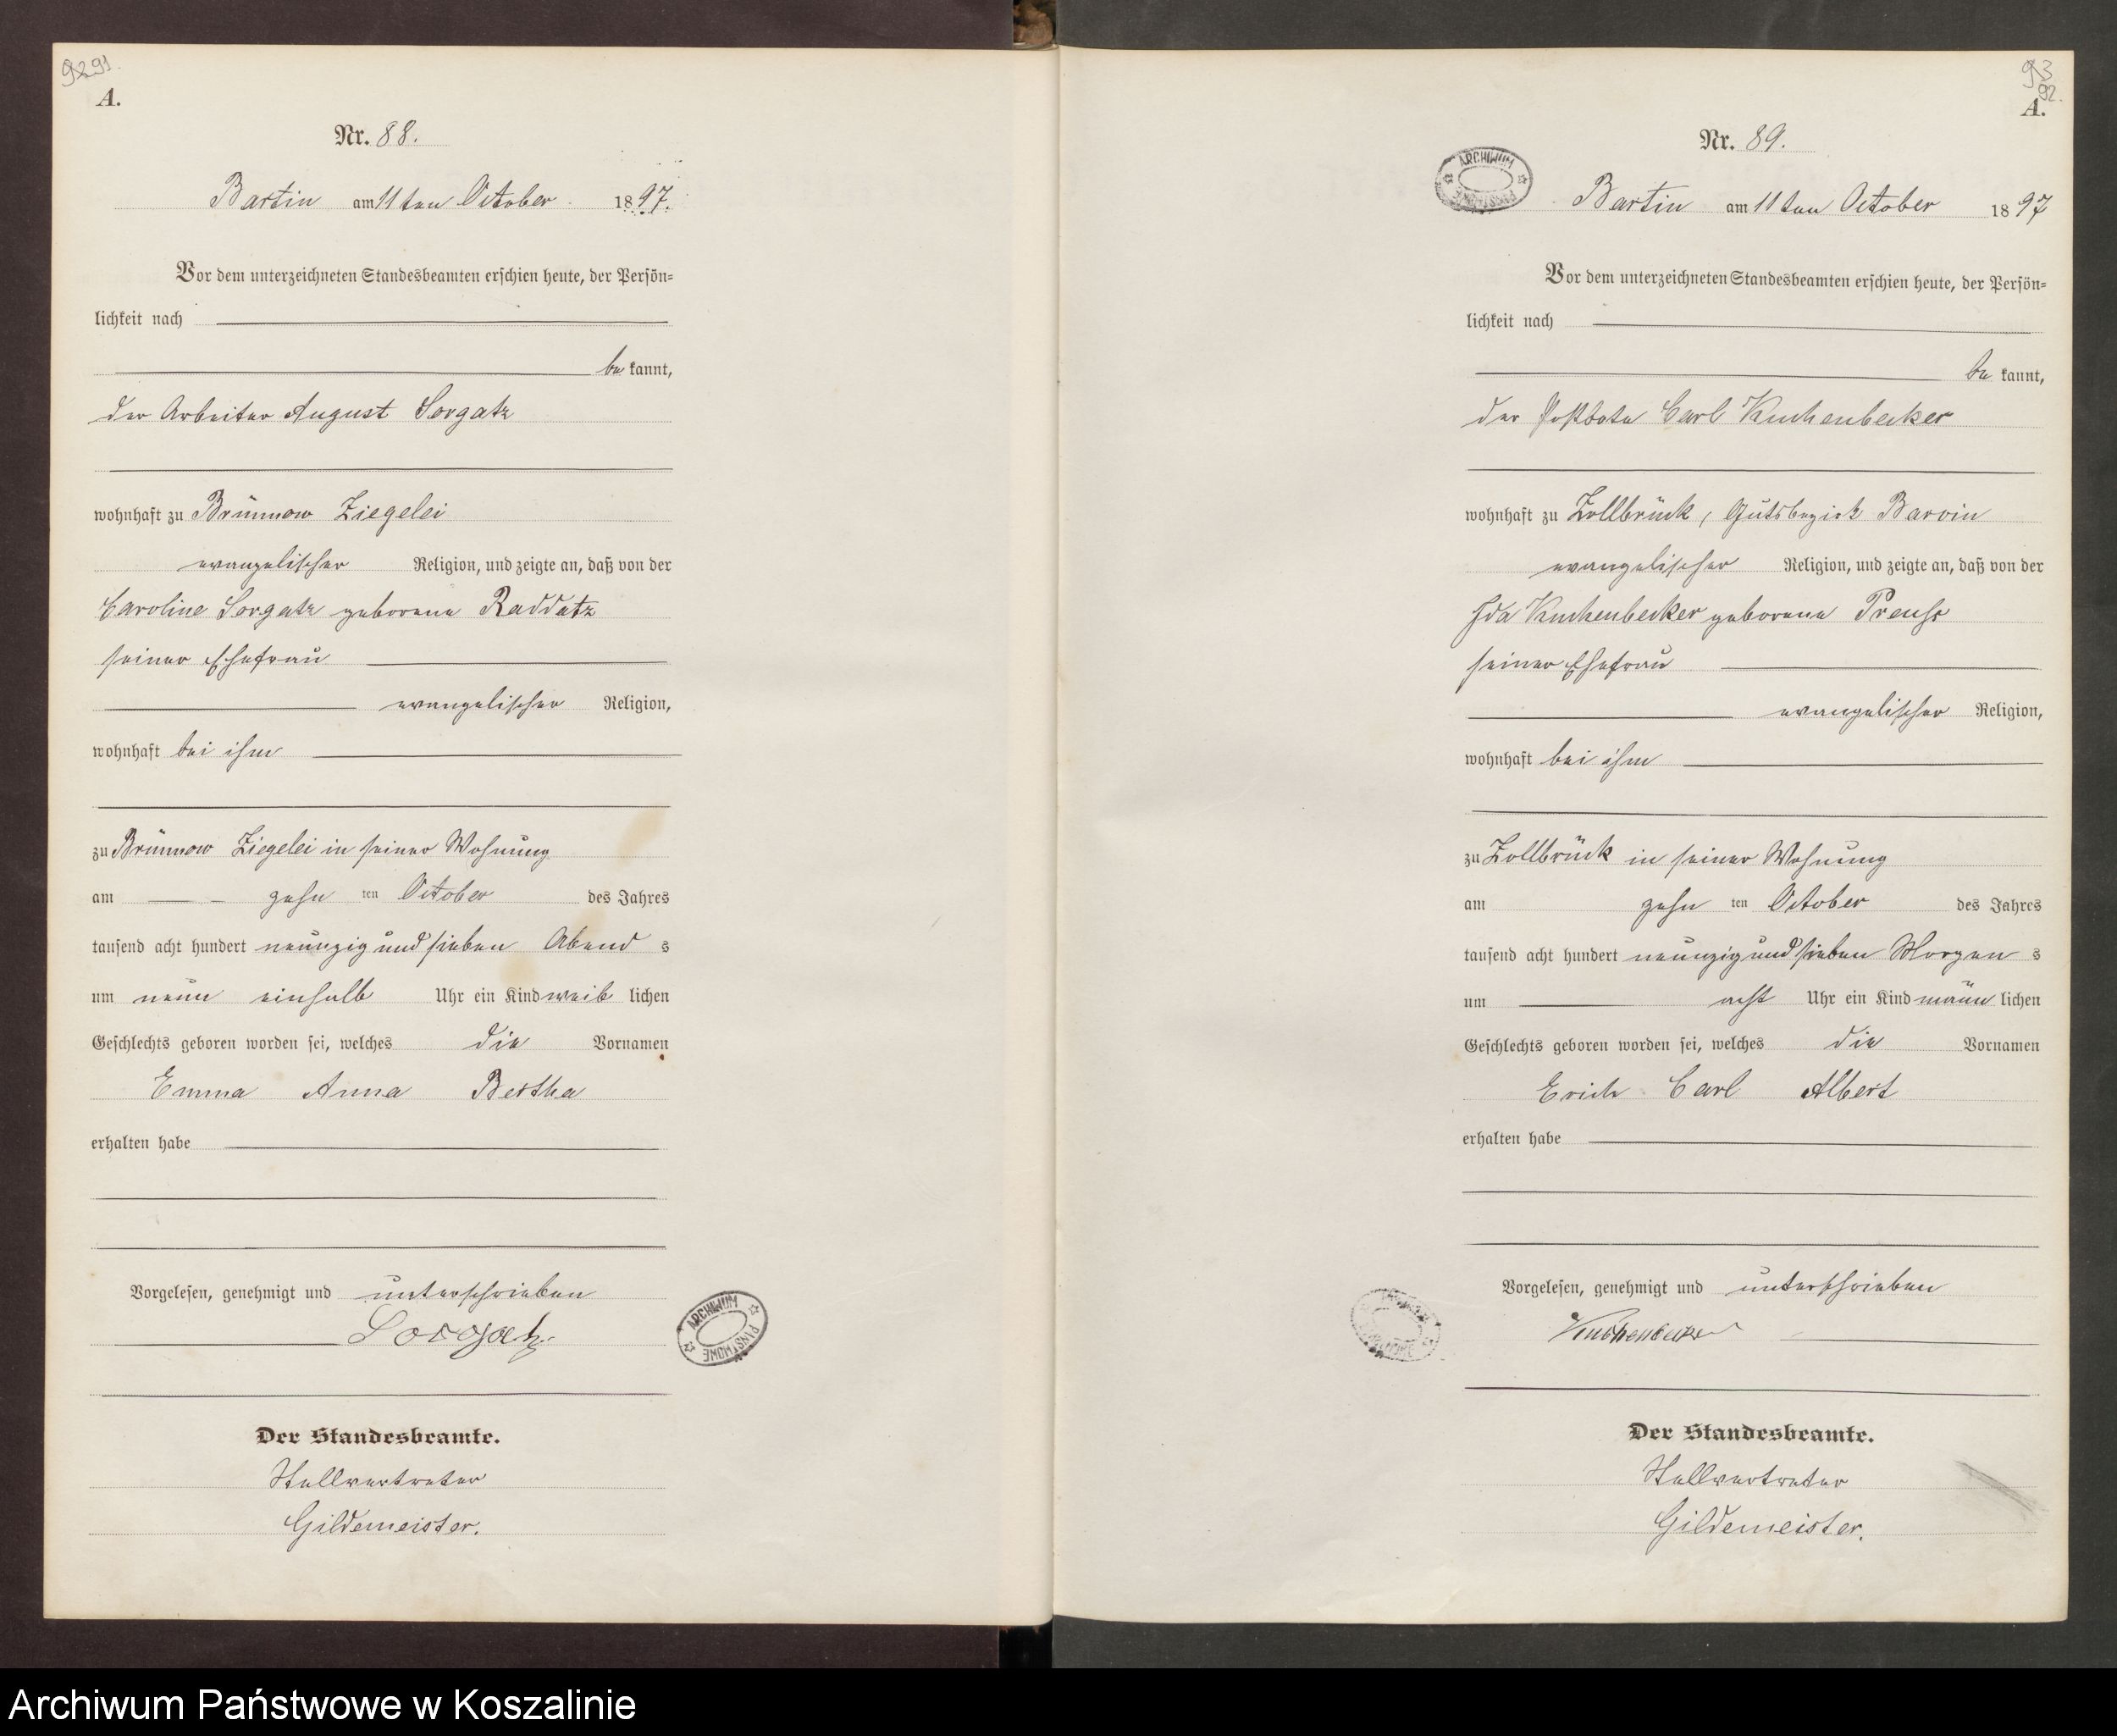 92 91.
A.
Nr. 88.
Bartin am 11 ten October 1897.
Vor dem unterzeichneten Standesbeamten erschien heute, der Persön=
lichkeit nach
be kannt,
der Arbeiter August Sorgatz
wohnhaft zu Brünnow Ziegelei
evangelischer Religion, und zeigte an, daß von der
Caroline Sorgatz geborene Raddatz
seiner Ehefrau
evangelischer Religion,
wohnhaft bei ihm
zu Brünnow Ziegelei in seiner Wohnung
am zehn ten October des Jahres
tausend acht hundert neunzig und sieben Abend s
um neun einhalb Uhr ein Kind weib lichen
Geschlechts geboren worden sei, welches die Vornamen
Emma Anna Bertha
erhalten habe
Vorgelesen, genehmigt und unterschrieben
Sorgatz
ARCHIWUM PAŃSTWOWE
Der Standesbeamte.
Stellvertreter
Gildemeister.
93
92.
A.
Nr. 89.
ARCHIWUM PAŃSTWOWE
Bartin am 11 ten October 1897
Vor dem unterzeichneten Standesbeamten erschien heute, der Persön=
lichkeit nach
be kannt,
der Postbote Carl Kuchenbecker
wohnhaft zu Zollbrück, Gutsbezirk Barvin
evangelischer Religion, und zeigte an, daß von der
Ida Kuchenbecker geborene Preuss
seiner Ehefrau
evangelischer Religion,
wohnhaft bei ihm
zu Zollbrück in seiner Wohnung
am zehn ten October des Jahres
tausend acht hundert neunzig und sieben Morgen s
um acht Uhr ein Kind männ lichen
Geschlechts geboren worden sei, welches die Vornamen
Erich Carl Albert
erhalten habe
Vorgelesen, genehmigt und unterschrieben
Kuchenbecker
Der Standesbeamte.
Stellvertreter
Gildemeister.
Archiwum Państwowe w Koszalinie